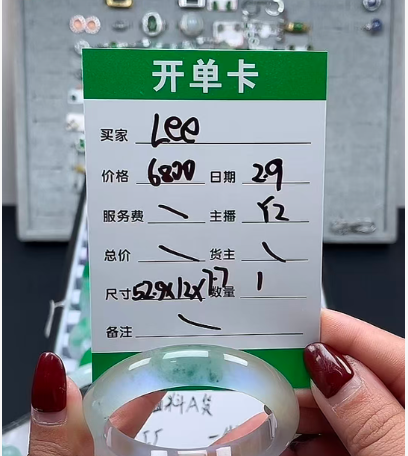 开单卡
买家 Lee
价格 6800 日期 2.9
服务费 \ 主播 Y2
总价 \ 货主 \
尺寸 52.9x12x7.7 数量 1
备注 \
料A货